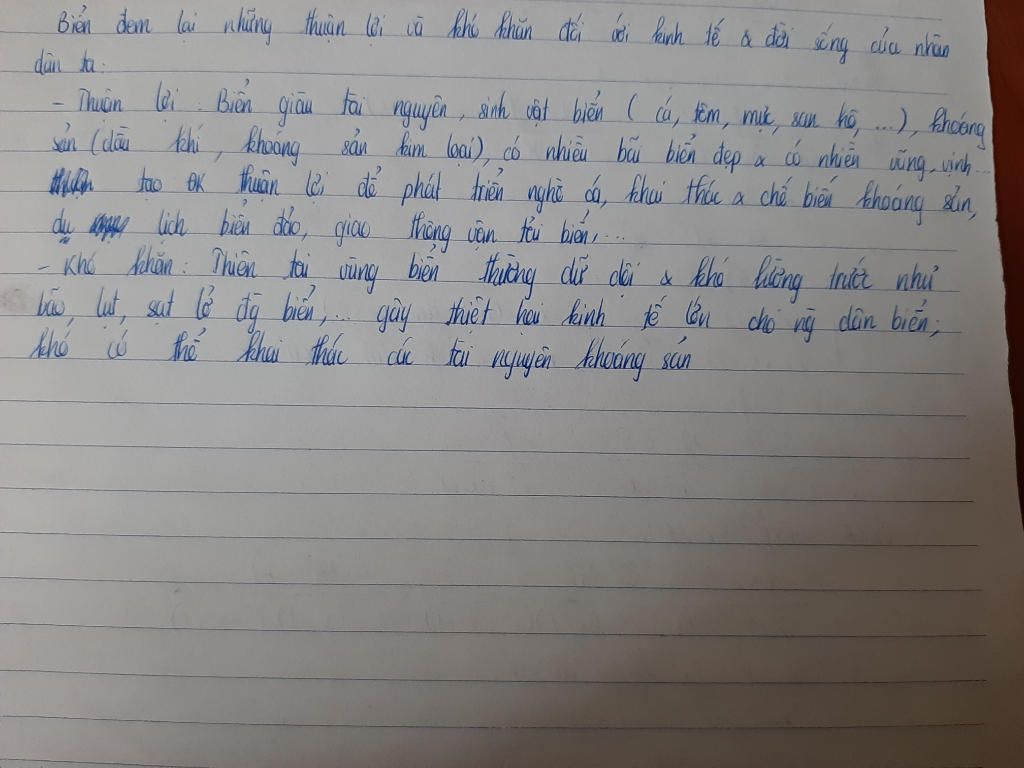 Biển đem lại những thuận lợi và khó khăn đối với kinh tế & đời sống của nhân
dân ta:
- Thuận lợi: Biển giàu tài nguyên, sinh vật biển ( cá, tôm, mực, san hô, ...), khoáng
sản (dầu khí, khoáng sản kim loại), có nhiều bãi biển đẹp & có nhiều vũng, vịnh...
tạo ĐK thuận lợi để phát triển nghề cá, khai thác & chế biến khoáng sản,
du lịch biển đảo, giao thông vận tải biển,...
- Khó khăn: Thiên tai vùng biển thường dữ dội & khó lường trước như
bão, lụt, sạt lở đg biển,... gây thiệt hại kinh tế lớn cho ng dân biển;
khó có thể khai thác các tài nguyên khoáng sản